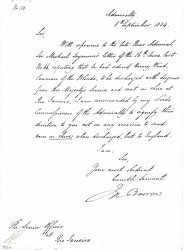 No 58
Admiralty
1st September 1834.
Sir,
With reference to the late Rear Admiral
Sir Michael Seymour's Letter of the 16th June last
No 46, reporting that he had ordered Henry Ward,
Seaman of the Blonde, to be discharged with disgrace
from His Majesty's Service and sent on shore at
Rio Janeiro, I am commanded by my Lords
Commissioners of the Admiralty to signify their
direction to you not on any occasion to send
men on shore when discharged, but to England.
I am,
Sir,
Your most obedient
humble Servant
Jno Barrow
The Senior Officer
at
Rio Janeiro